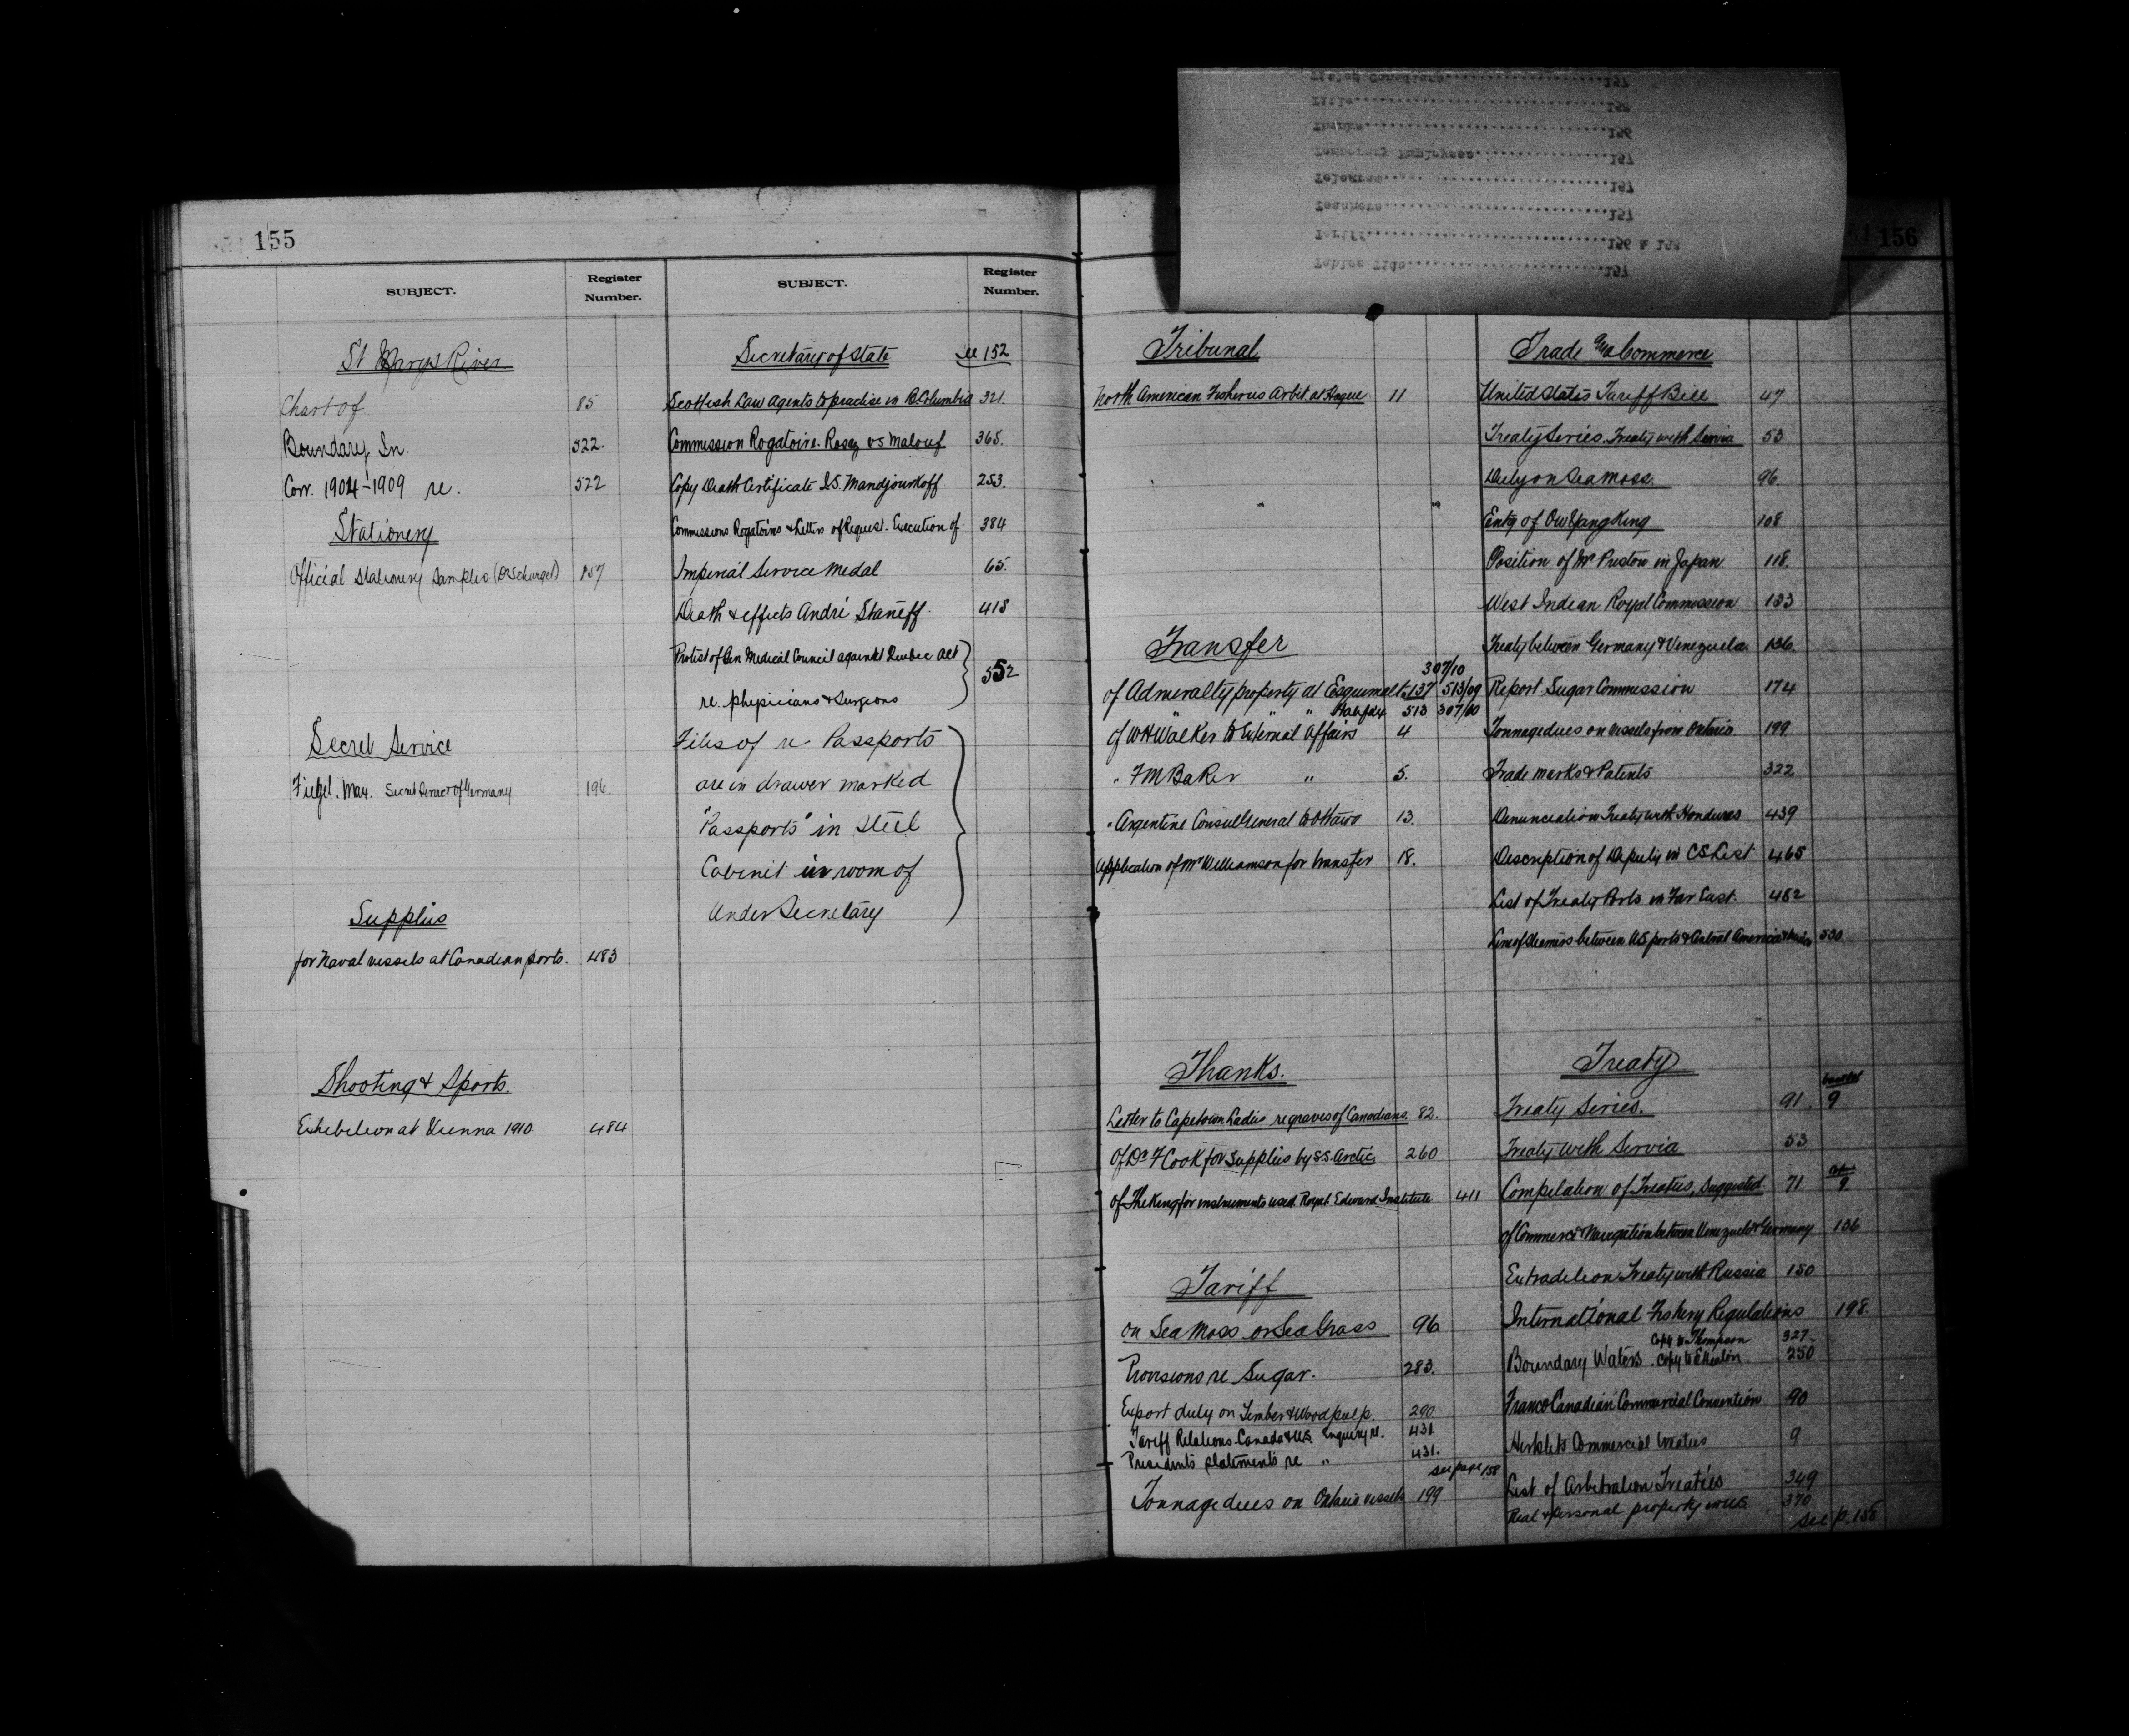 155
SUBJECT.
Register Number.
St Marys River
Chart of 85
Boundary In. 522.
Corr. 1904-1909 re. 522
Stationery
Official Stationery Samples 157
Secret Service
Max. Secret Service of Germany 196
Supplies
for Naval vessels at Canadian ports. 483
Shooting & Sports.
Exhibition at Vienna 1910 484
SUBJECT.
Register Number.
Secretary of State See 152
Scottish Law Agents to practise in B. Columbia 321.
Commission Rogatoire. vs Malouf 365.
Copy Death Certificate I.S. Mandjourkoff 253.
Commissions Rogatoires & Letters of Request. Execution of 384
Imperial Service Medal 65.
Death & effects André Staneff. 418
Protest of Gen Medical Council against Quebec Act
re. physicians & Surgeons 552
Files of re Passports
are in drawer marked
"Passports" in steel
Cabinet in room of
Under Secretary
Titled Canadians 157
Title 158
Thanks 156
Temporary Employees 157
Telegram 157
Teachers 157
Tariff 156 & 158
Tables Tide 157
156
Tribunal
North American Fisheries Arbit. at Hague 11
Transfer
307/10
of Admiralty property at Esquimalt. 137 513/09
" " " Halifax 513 307/10
of W H Walker to External Affairs 4
" F M Baker " 5.
" Argentine Consul General to Ottawa 13.
Application of Mr Williamson for transfer 18.
Thanks.
Letter to Capetown Ladies re graves of Canadians. 82.
Of Dr F Cook for Supplies by S.S. Arctic 260
Of The King for instruments used Royal Edward Institute 411
Tariff
on Sea Moss or Sea Grass 96
Provisions re Sugar. 283.
Export duty on Timber & Wood pulp. 290
Tariff Relations. Canada & U.S. Enquiry re. 431
Presidents statements re " 431.
See page 158
Tonnage dues on Ontario vessels 199
Trade and Commerce
United States Tariff Bill 47
Treaty Series. Treaty with Servia 53
Duty on Sea Moss. 96.
Entry of Ow Yang King 108
Position of Mr Preston in Japan 118.
West Indian Royal Commission 133
Treaty between Germany & Venezuela 136.
Report. Sugar Commission 174
Tonnage dues on vessels from Ontario 199
Trade marks & Patents 322
Denunciation Treaty with Honduras 439
Description of Deputy in C.S. List 465
List of Treaty Ports in Far East. 482
Line of Steamers between U.S. ports & Central America 530
Treaty
Treaty Series. 91. 9
Treaty with Servia 53
Compilation of Treaties, Suggested 71 9
of Commerce & Navigation between Venezuela & Germany 136
Extradition Treaty with Russia 150
International Fishery Regulations 198.
Copy to Thompson 327
Boundary Waters. Copy to E. Heaton 250
Franco Canadian Commercial Convention 90
Hertslet's Commercial treaties 9
List of Arbitration Treaties 349
Real & personal property in U.S. 370
See p. 158